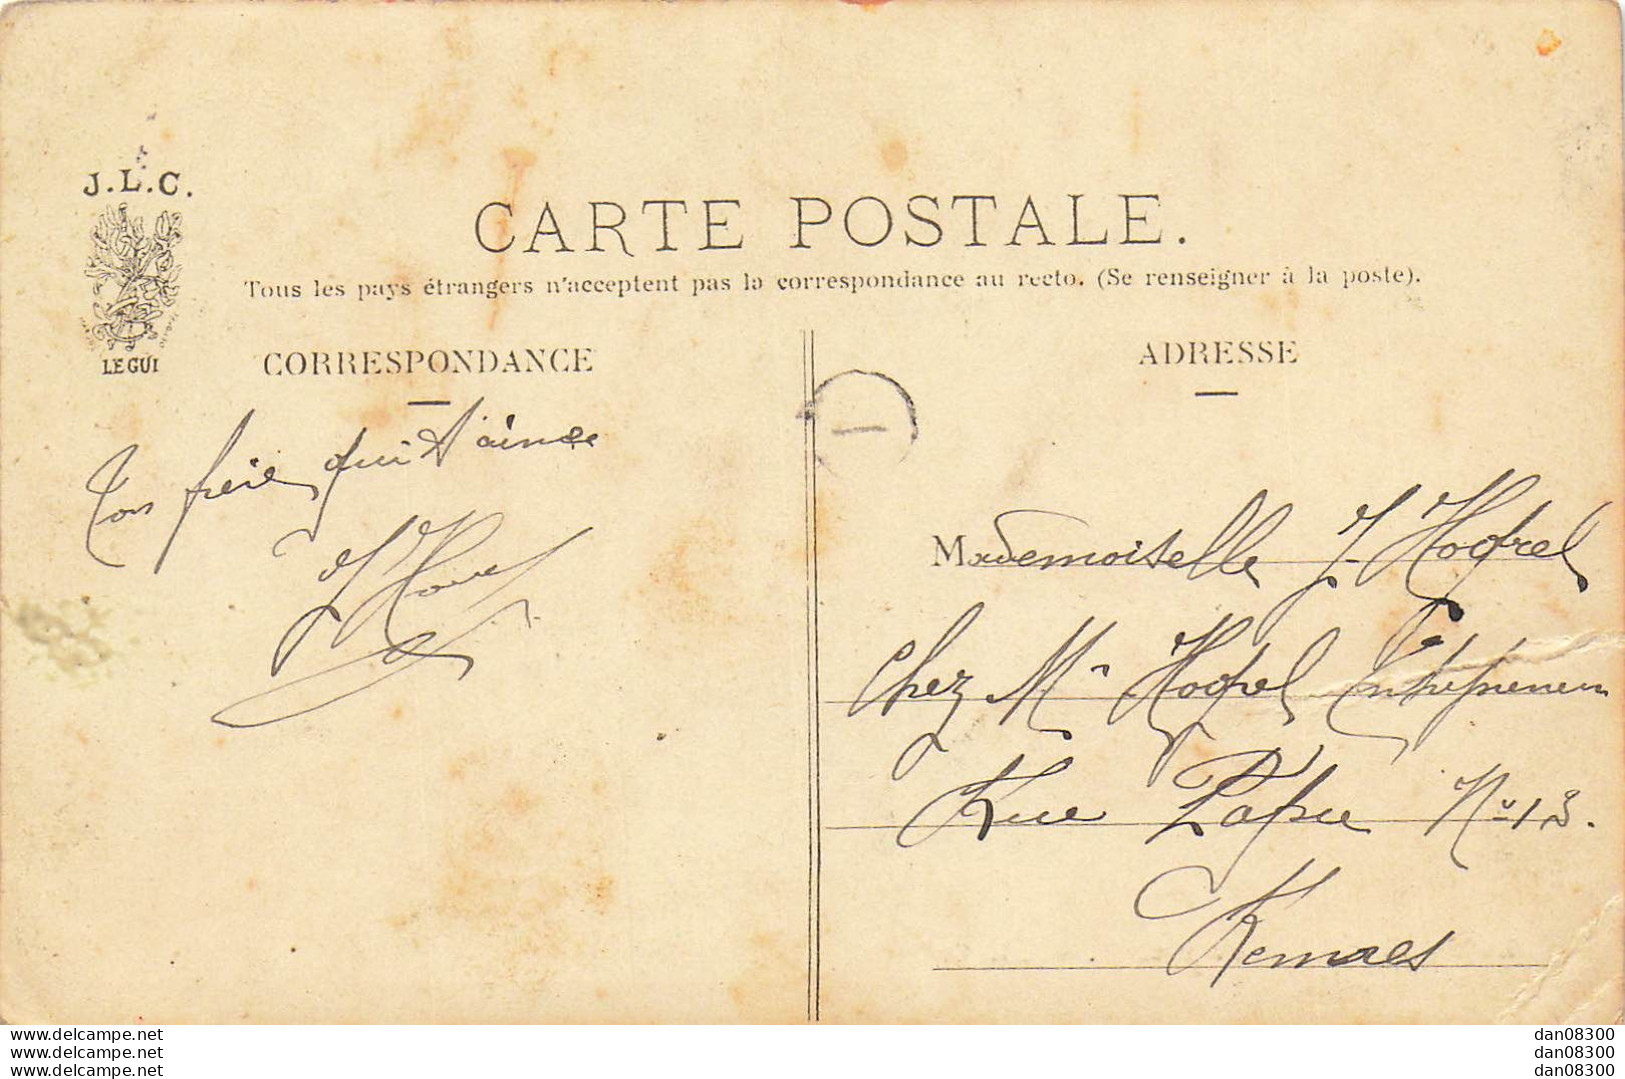 J.L.C.
LE GUI
CARTE POSTALE.
Tous les pays étrangers n'acceptent pas la correspondance au recto. (Se renseigner à la poste).
CORRESPONDANCE
ADRESSE
Ton frère qui t'aime
Mademoiselle J. Hoqrel
Chez Mr Hoqrel Entrepreneur
Rue No 13.
www.delcampe.net
www.delcampe.net
www.delcampe.net
dan08300
dan08300
dan08300